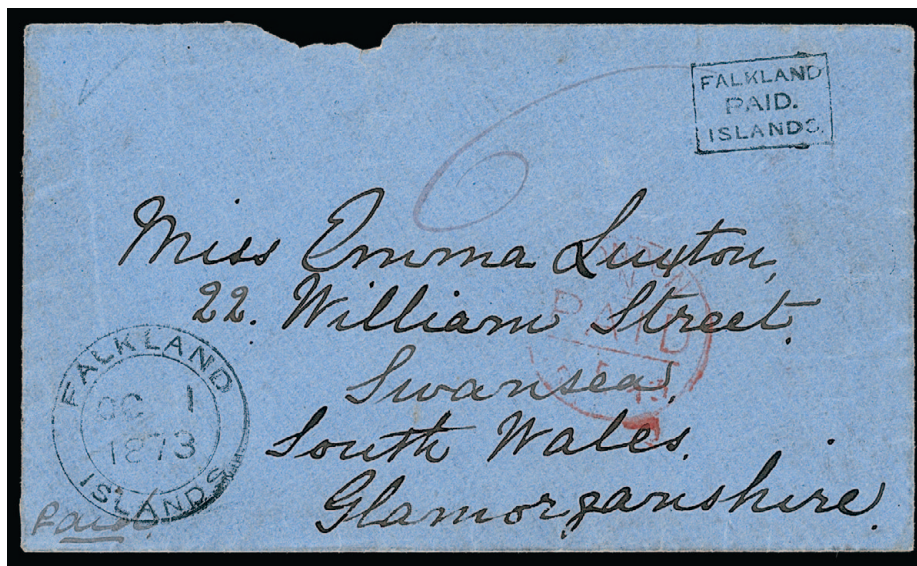 FALKLAND
PAID.
ISLANDS.
Miss Emma Luxton,
22. William Street.
Swansea,
South Wales.
Glamorganshire.
PAID
FALKLAND
OC 1
1873
ISLANDS
Paid